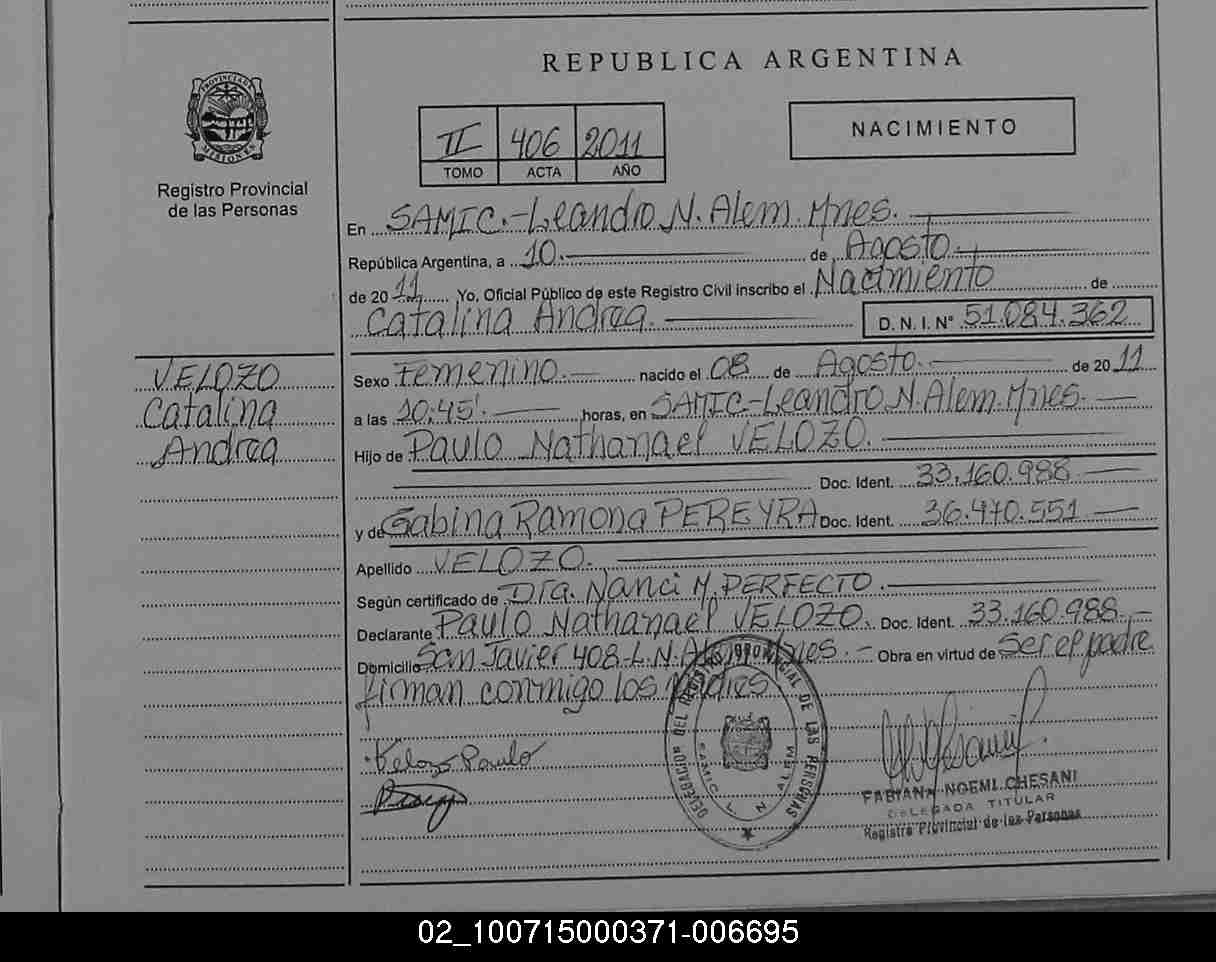 REPUBLICA ARGENTINA
PROVINCIA DE
MISIONES
Registro Provincial
de las Personas
II 406 2011
TOMO ACTA AÑO
NACIMIENTO
En SAMIC.-Leandro N. Alem. Mnes.
República Argentina, a 10. de Agosto.
de 2011, Yo, Oficial Público de este Registro Civil inscribo el Nacimiento de
Catalina Andrea. D. N. I. N° 51.084.362
VELOZO
Catalina
Andrea
Sexo Femenino. nacido el 08 de Agosto. de 2011
a las 10:45'. horas, en SAMIC-Leandro N. Alem. Mnes.
Hijo de Paulo Nathanael VELOZO.
Doc. Ident. 33.160.988
y de Gabina Ramona PEREYRA Doc. Ident. 36.470.551
Apellido VELOZO.
Según certificado de Dra. Nanci M. PERFECTO.
Declarante Paulo Nathanael VELOZO. Doc. Ident. 33.160.988.-
Domicilio San Javier 408-L.N. Alem. Mnes.- Obra en virtud de Ser el padre
firman conmigo los padres
Velozo Paulo
DELEGACION DEL REGISTRO PROVINCIAL DE LAS PERSONAS
SAMIC L. N. ALEM
FABIANA NOEMI CHESANI
DELEGADA TITULAR
Registro Provincial de las Personas
02_100715000371-006695